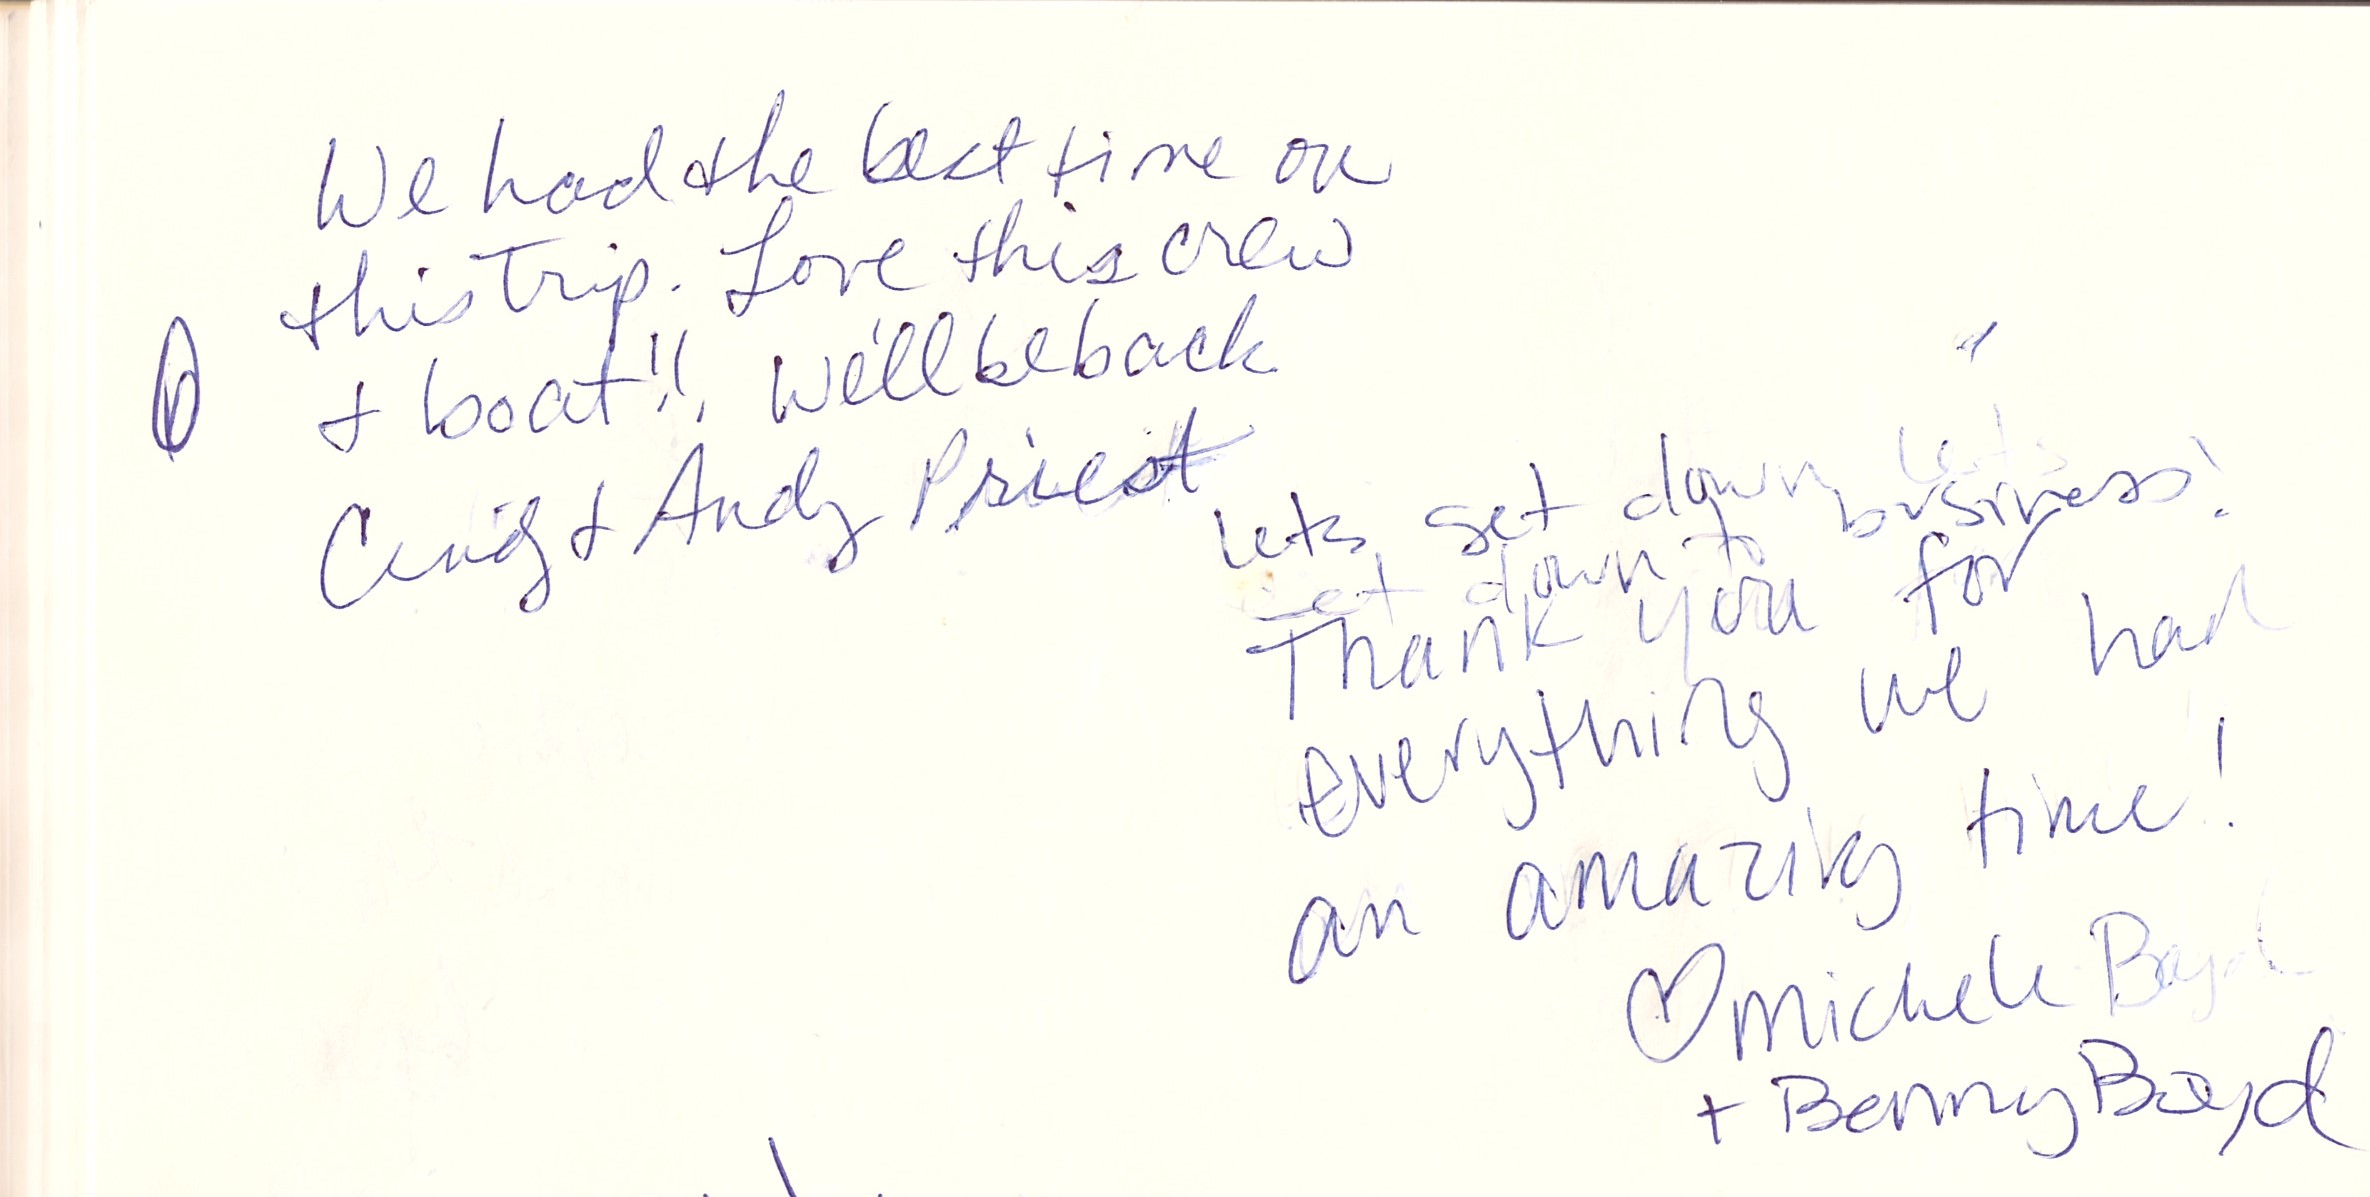 We had the best time on
this Trip. Love this crew
+ boat!!, We'll be back
& Andy Priest
Lets get down to business!
Let's
get down to
Thank you for
Everything we had
an amazing time!
♡ Michele Boyd
+ Benny Boyd